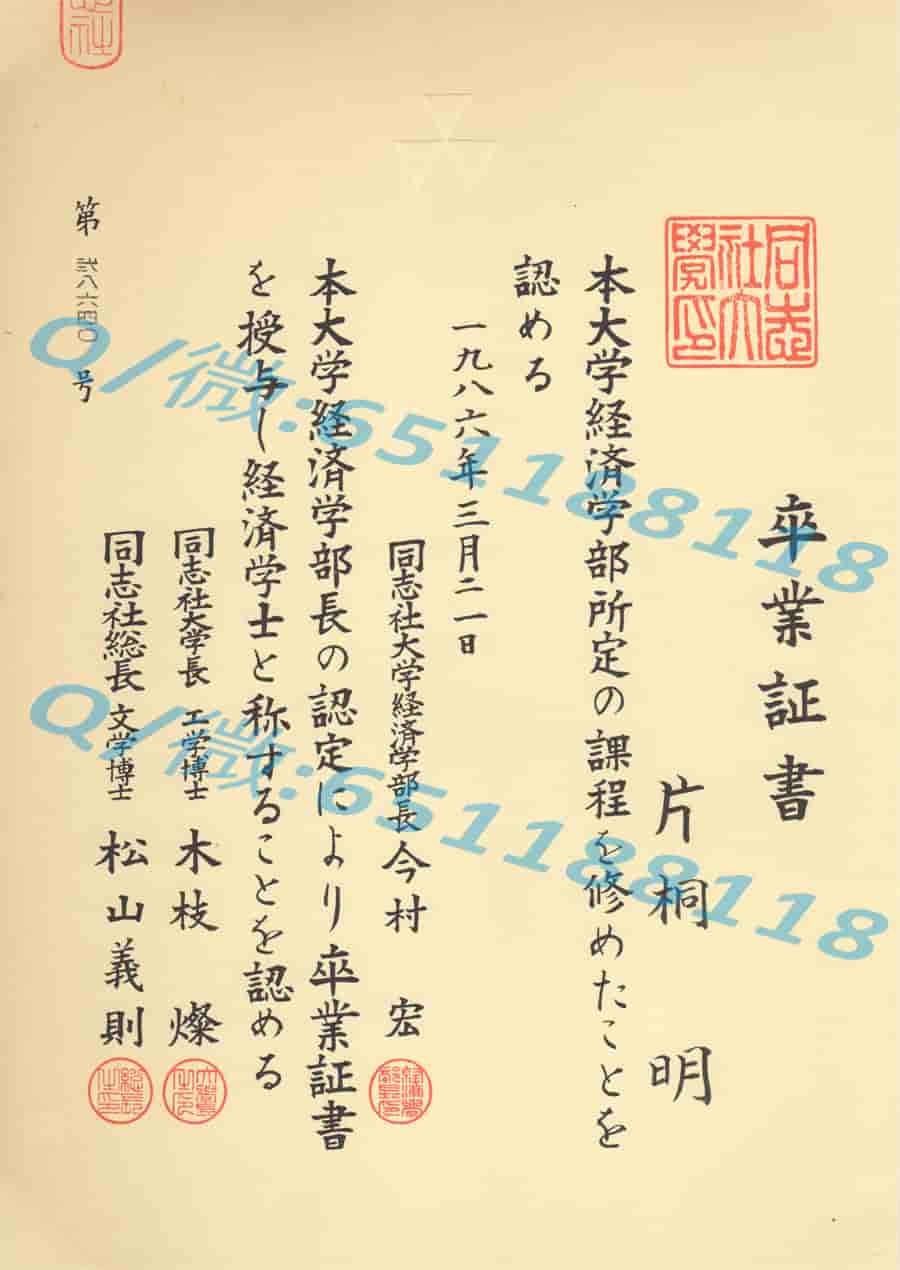 同志社大學印
卒業証書
片桐 明
本大学経済学部所定の課程を修めたことを
認める
一九八六年三月二一日
同志社大学経済学部長 今村 宏
本大学経済学部長の認定により卒業証書
を授与し経済学士と称することを認める
同志社大学長 工学博士 木枝 燦
同志社総長 文学博士 松山義則
第 八六四〇 号
Q/微:651188118
Q/微:651188118